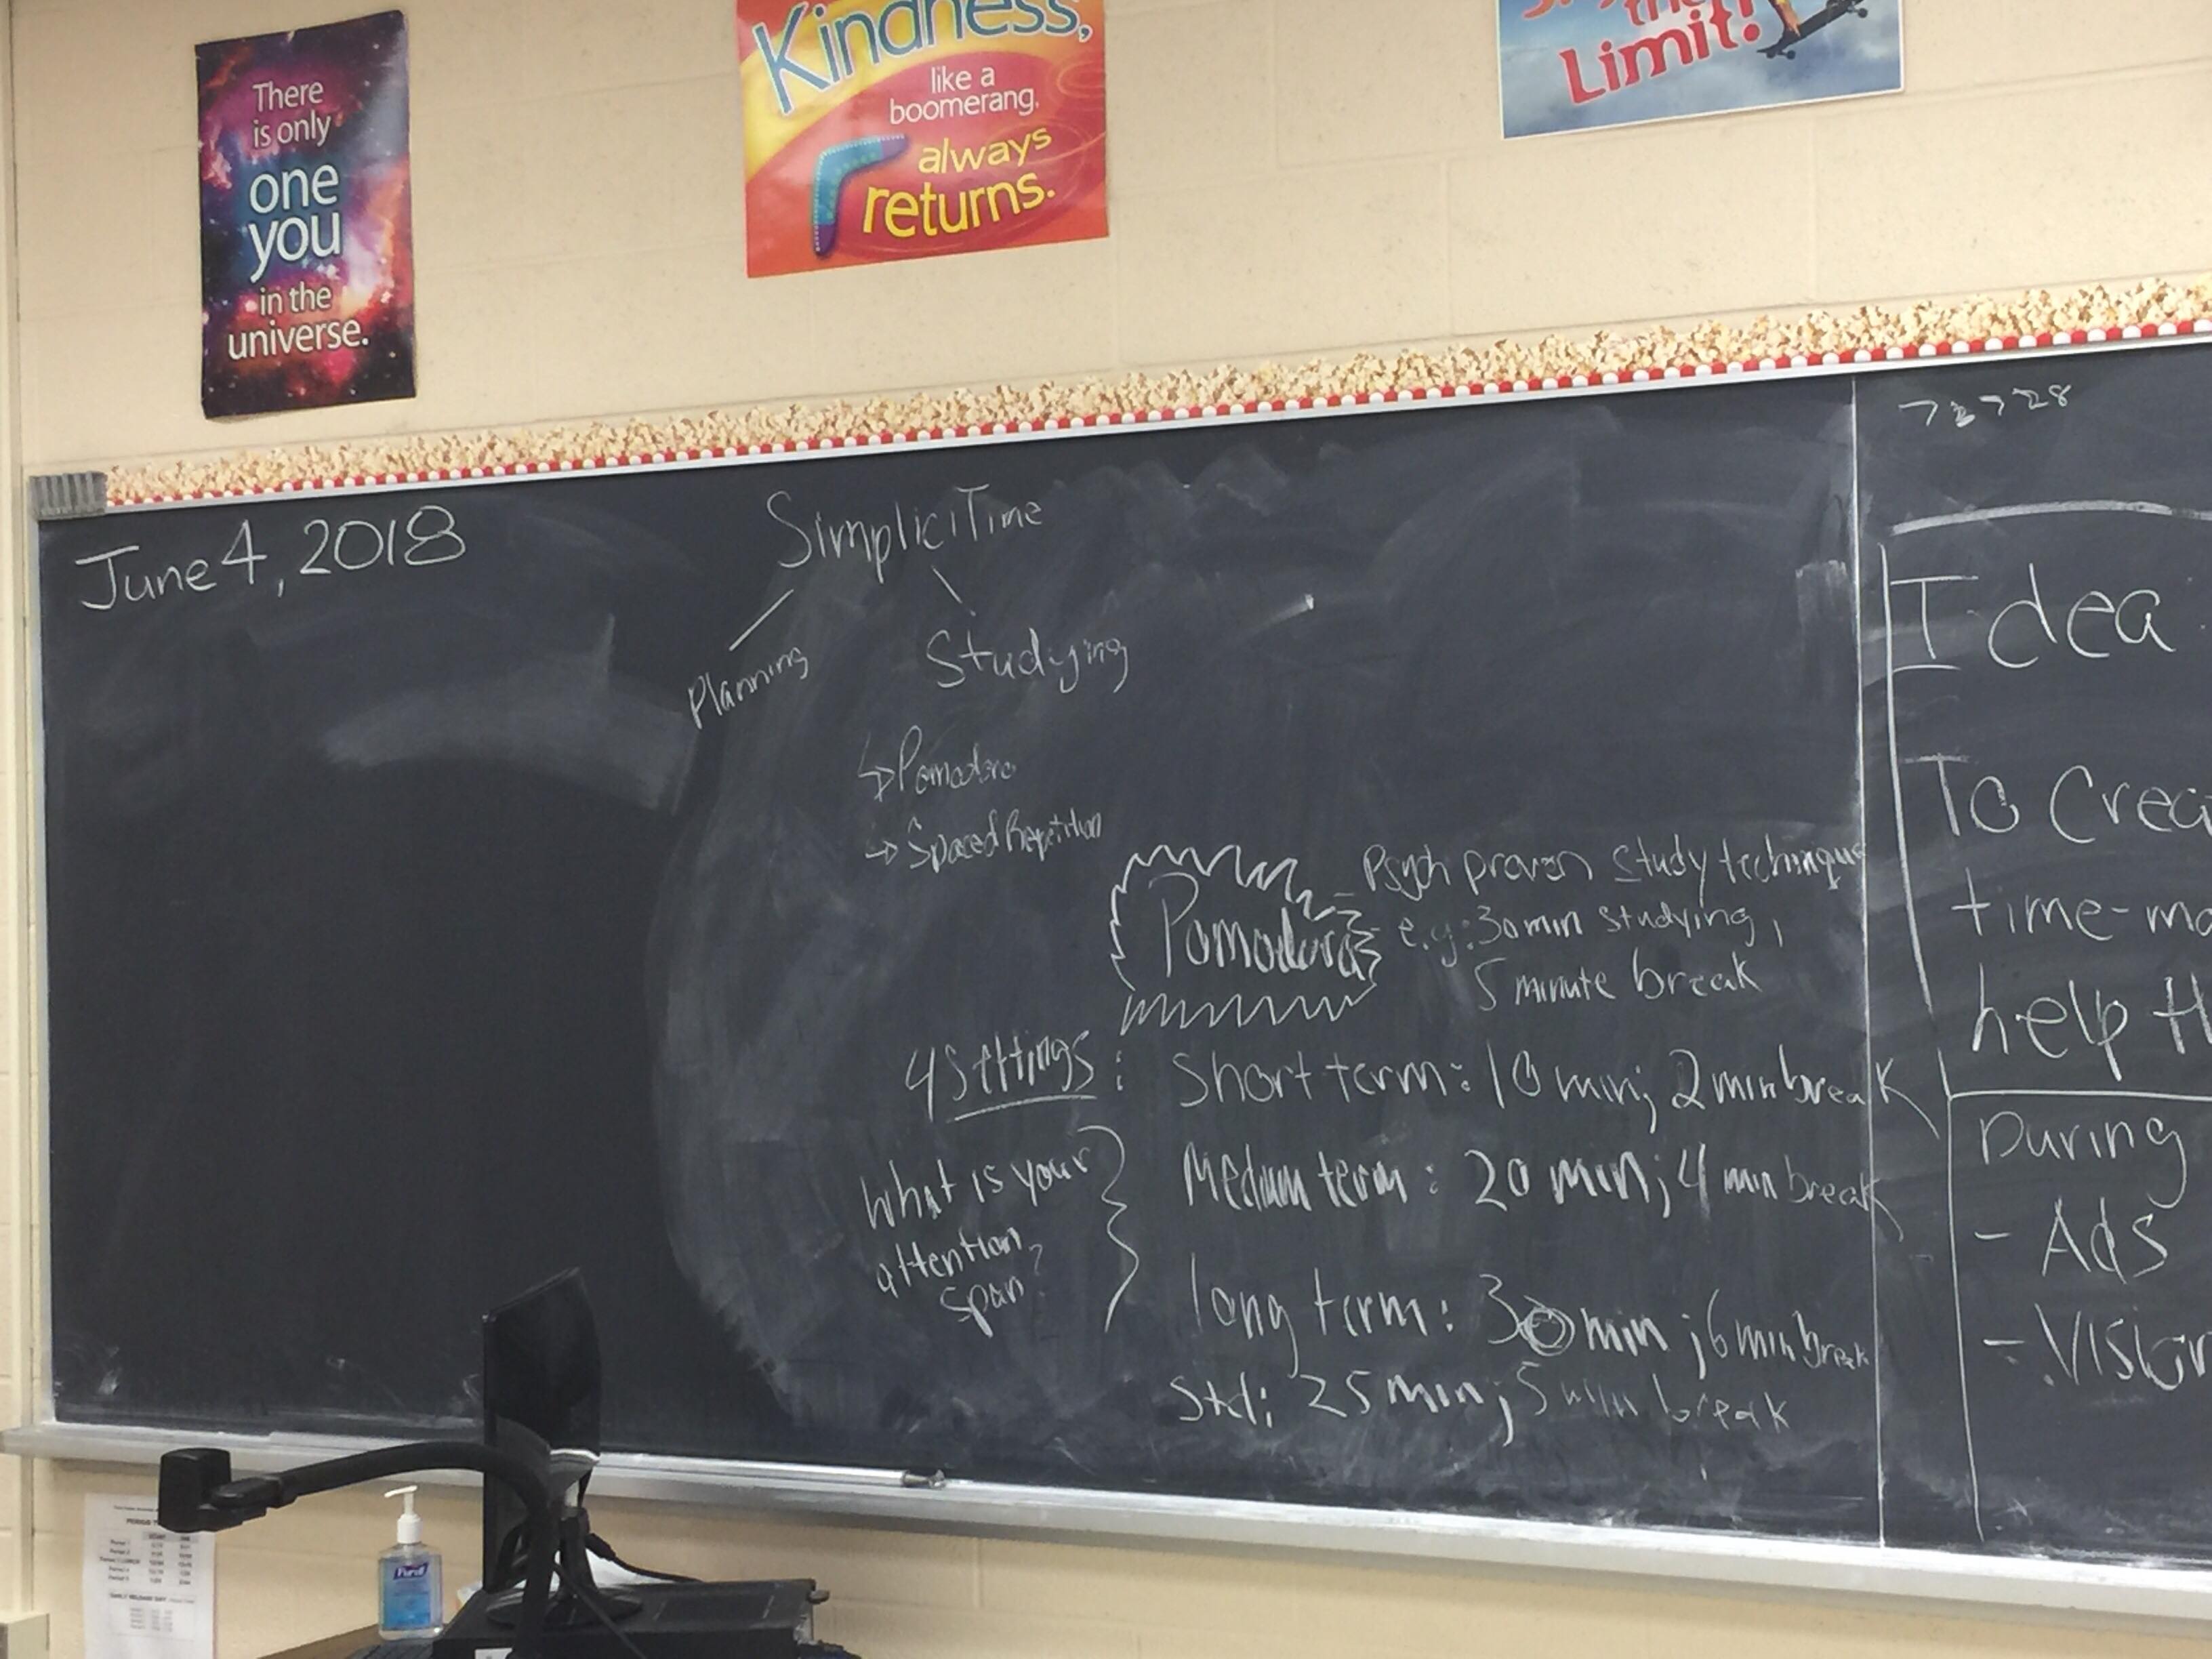 There
is only
one
you
in the
universe.
Kindness,
like a
boomerang,
always
returns.
the
Limit!
June 4, 2018
SimpliciTime
Planning
Studying
↳ Pomodoro
→ Spaced Repetition
Pomodoro
- Psych proven study technique
- e.g.: 30 min studying,
5 minute break
4 Settings:
Short term: 10 min; 2 min break
What is your
attention
span?
Medium term: 20 min; 4 min break
long term: 30 min; 6 min break
Std: 25 min; 5 min break
Idea
To Crea
time-ma
help th
During
- Ads
- Vision
Purell